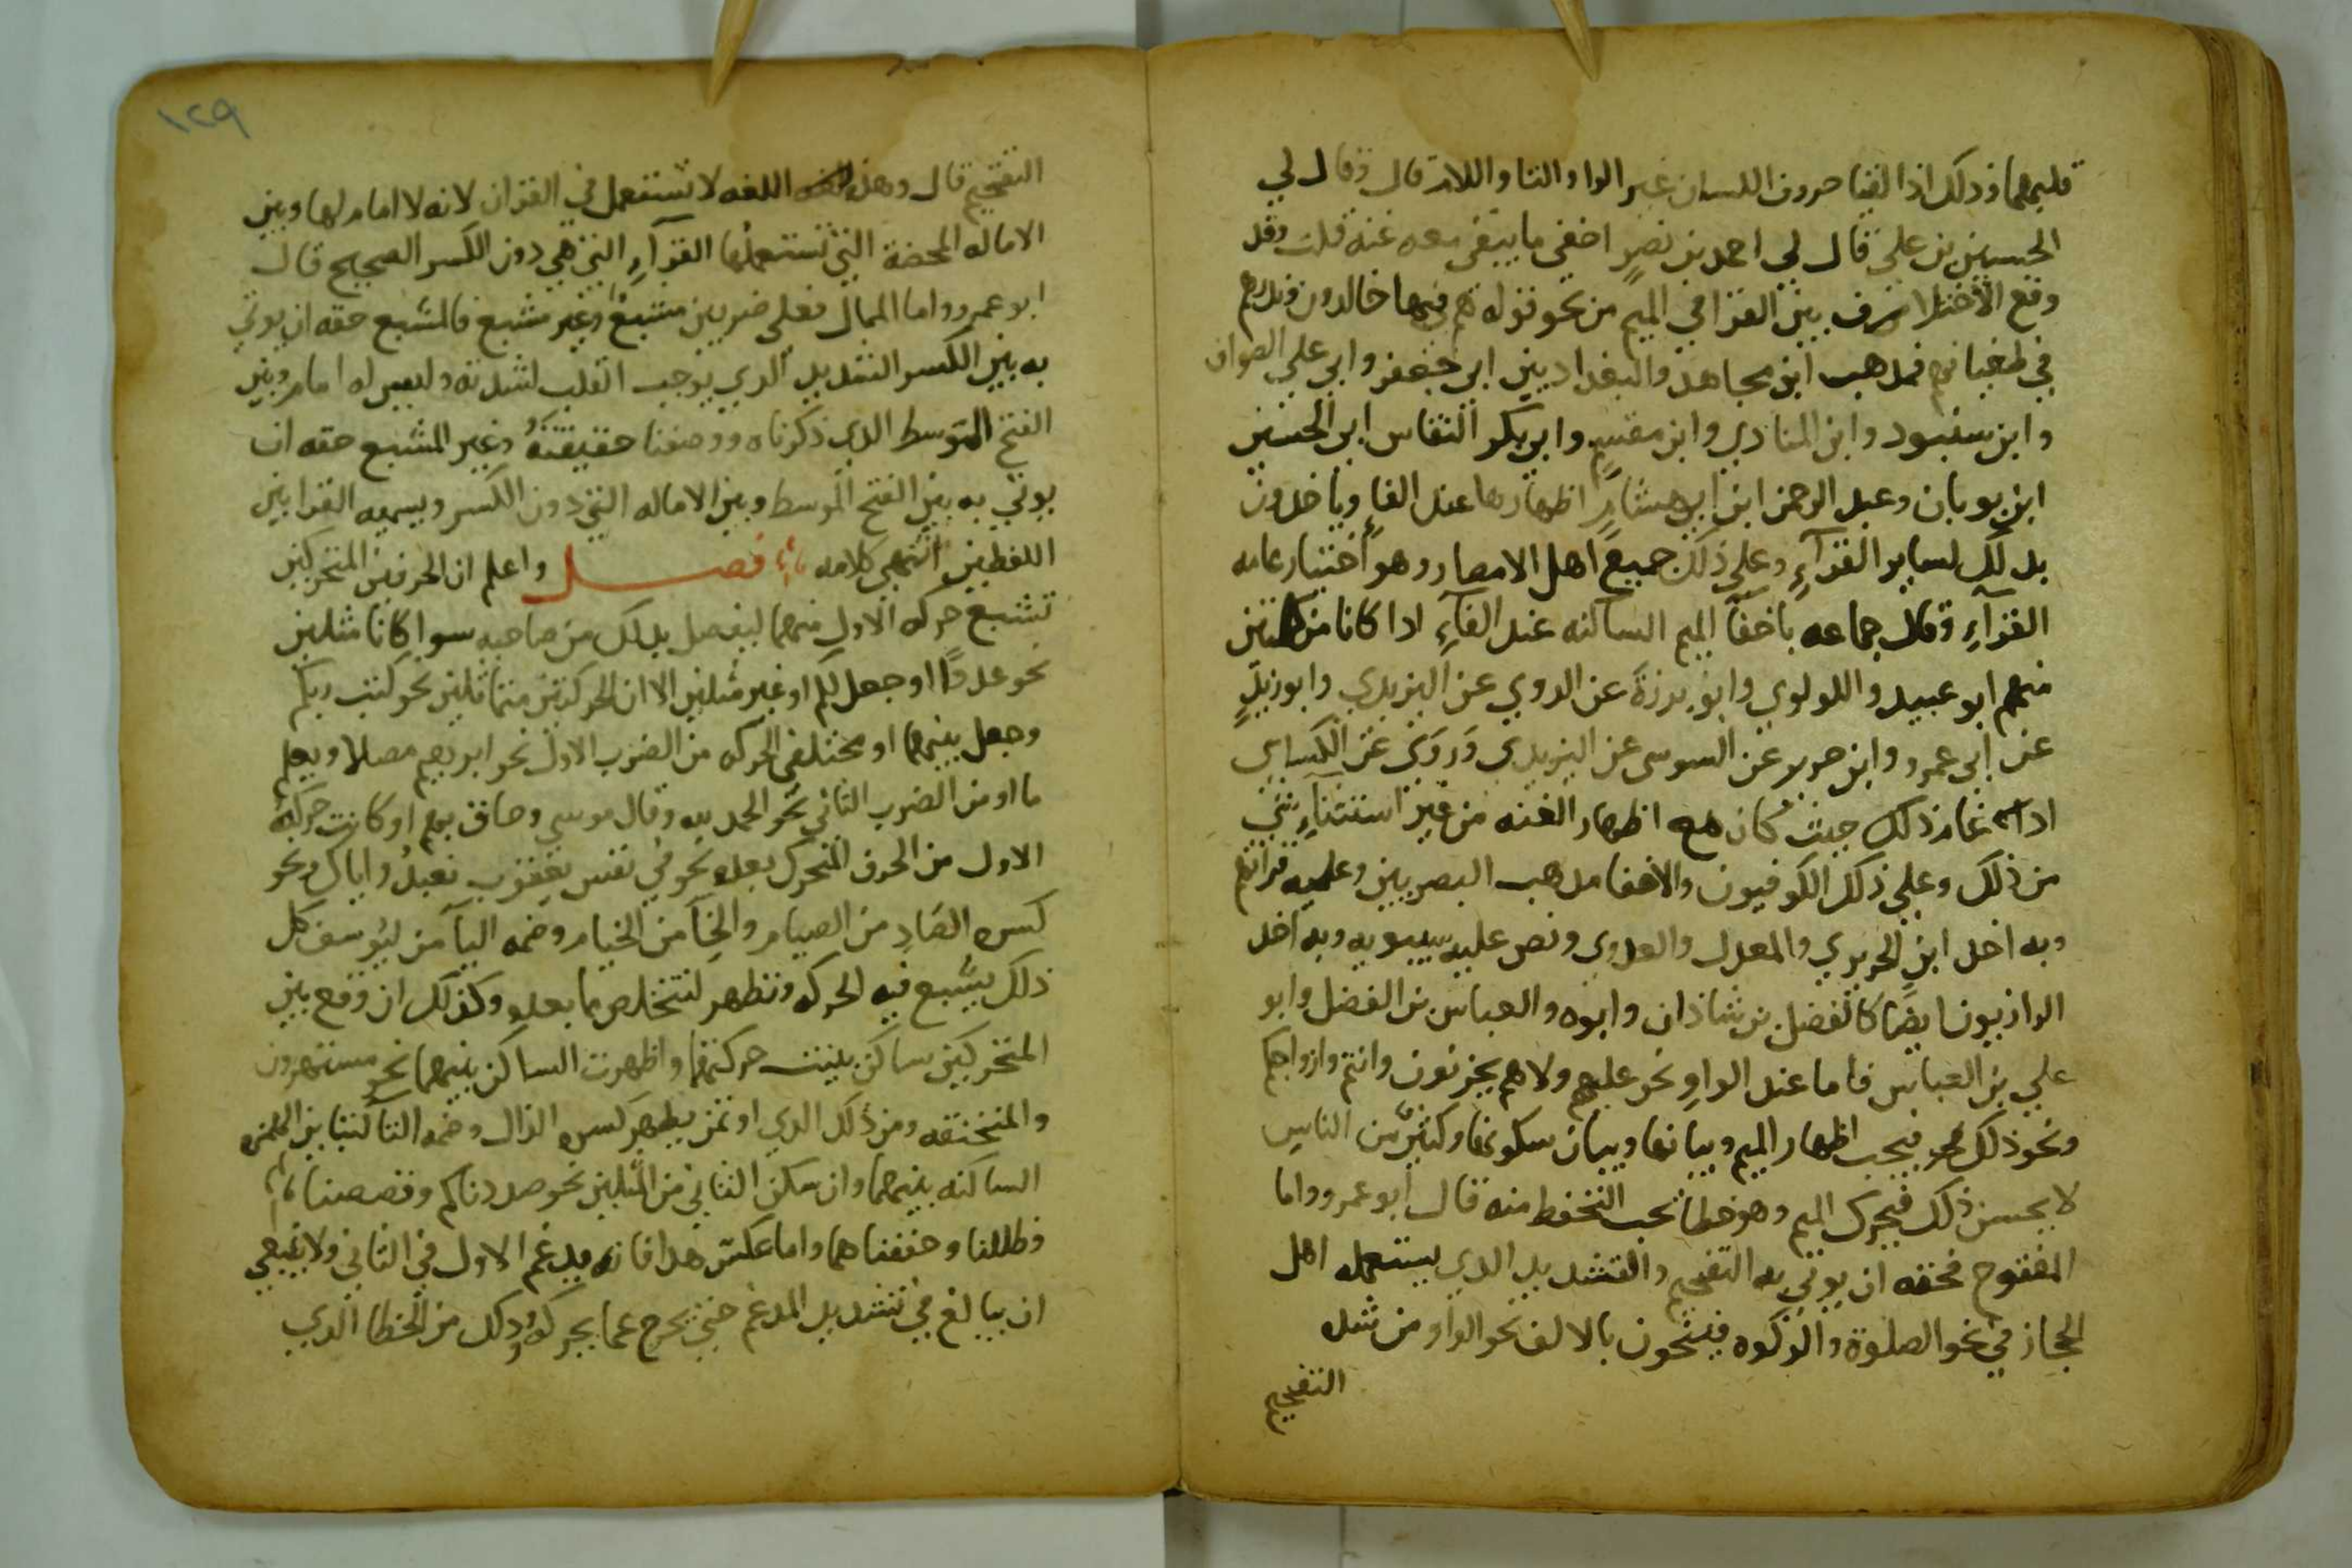 قلبهما وذلك اذا لقيا حروف اللسان غير الواو والتا واللام قال وقال لي
الحسين بن علي قال لي احمد بن نصر اخفي ما يبقى معه غنه قلت وقد
وقع الاختلاف بين القرا في الميم من نحو قوله هم فيها خالدون ويمدهم
في طغيانهم فمذهب ابن مجاهد والبغداديين ابي جعفر وابي علي الصواف
وابن شنبود وابن المنادي وابن مقسم وابي بكر النقاش ابي الحسين
ابن بويان وعبد الرحمن ابن ابي هشام اظهارها عند الفاء وياخذون
بذلك لساير القرآء وعلى ذلك جميع اهل الامصار وهو اختيار عامه
القرآء وقال جماعه باخفآ الميم الساكنه عند الفآء اذا كانا من كلمتين
منهم ابو عبيد واللولوي وابو برزة عن الدوري عن اليزيدي وابو زيد
عن ابي عمرو وابن جرير عن السوسي عن اليزيدي وروي عن الكساي
ادغام ذلك حيث كان مع اظهار الغنه من غير استثنآء شي
من ذلك وعلى ذلك الكوفيون والاخفا مذهب البصريين وعليه قرانهم
وبه اخذ ابن الحريري والمعدل والعدوي ونص عليه سيبويه وبه اخذ
الرازيون ايضا كالفضل بن شاذان وابوه والعباس بن الفضل وابو
علي بن العباس فاما عند الواو نحو عليهم ولا هم يحزنون وانتم وازواجكم
ونحو ذلك فيجب اظهار الميم وبيانها وبيان سكونها وكثير من الناس
لا يحسن ذلك فيحرك الميم وهو خطا يجب التحفظ منه قال ابو عمرو واما
المفتوح فحقه ان يوتي به التفخيم والتشديد الذي يستعمله اهل
الحجاز في نحو الصلوة والزكوه فينحون بالالف نحو الواو من شده
التفخيم
١٢٩
التفخيم قال وهذه اللغه لا تستعمل في القران لانه لا امام لها وبين
الاماله المحضة التي تستعملها القرآء التي هي دون الكسر الصحيح قال
ابو عمرو واما الممال فعلى ضربين مشبع وغير مشبع فالمشبع حقه ان يوتي
به بين الكسر الشديد الذي يوجب القلب لشدته وليس له امام وبين
الفتح المتوسط الذي ذكرناه ووصفنا حقيقته وغير المشبع حقه ان
يوتي به بين الفتح المتوسط وبين الاماله التي دون الكسر ويسميه القرا بين
اللفظين انتهى كلامه فصل واعلم ان الحرفين المتحركين
تشبع حركه الاول منهما ليفصل بذلك من صاحبه سوا كانا مثلين
نحو عددًا او جعل لكم او غير مثلين الا ان الحركتين متماثلين نحو كتب ربكم
وجعل بينهما او مختلفي الحركه من الضرب الاول نحو ابرهيم مصلا ويعلم
ما او من الضرب الثاني نحو الحمد لله وقال موسى وحاق بهم او كانت حركه
الاول من الحرف المتحرك بعده نحو في نفس يعقوب نعبد واياك ونحو
كسره الصاد من الصيام والخآ من الخيام وضمه اليآ من ليوسف كل
ذلك يشبع فيه الحركه وتظهر لتتخلص مما بعده وكذلك ان وقع بين
المتحركين ساكن بينت حركتهما واظهرت الساكن بينهما نحو مستهزون
والمنخنقه ومن ذلك الذي اوتمن يظهر كسره الذال وضمه التا لتباين الهمزه
الساكنه بينهما وان سكن الثاني من المثلين نحو صددناكم وقصصنا
وظللنا وحففناهما واما عكس هذا فانه يدغم الاول في الثاني ولا ينبغي
ان يبالغ في تشديد المدغم حتى يخرج عما يحركه وذلك من الخطا الذي